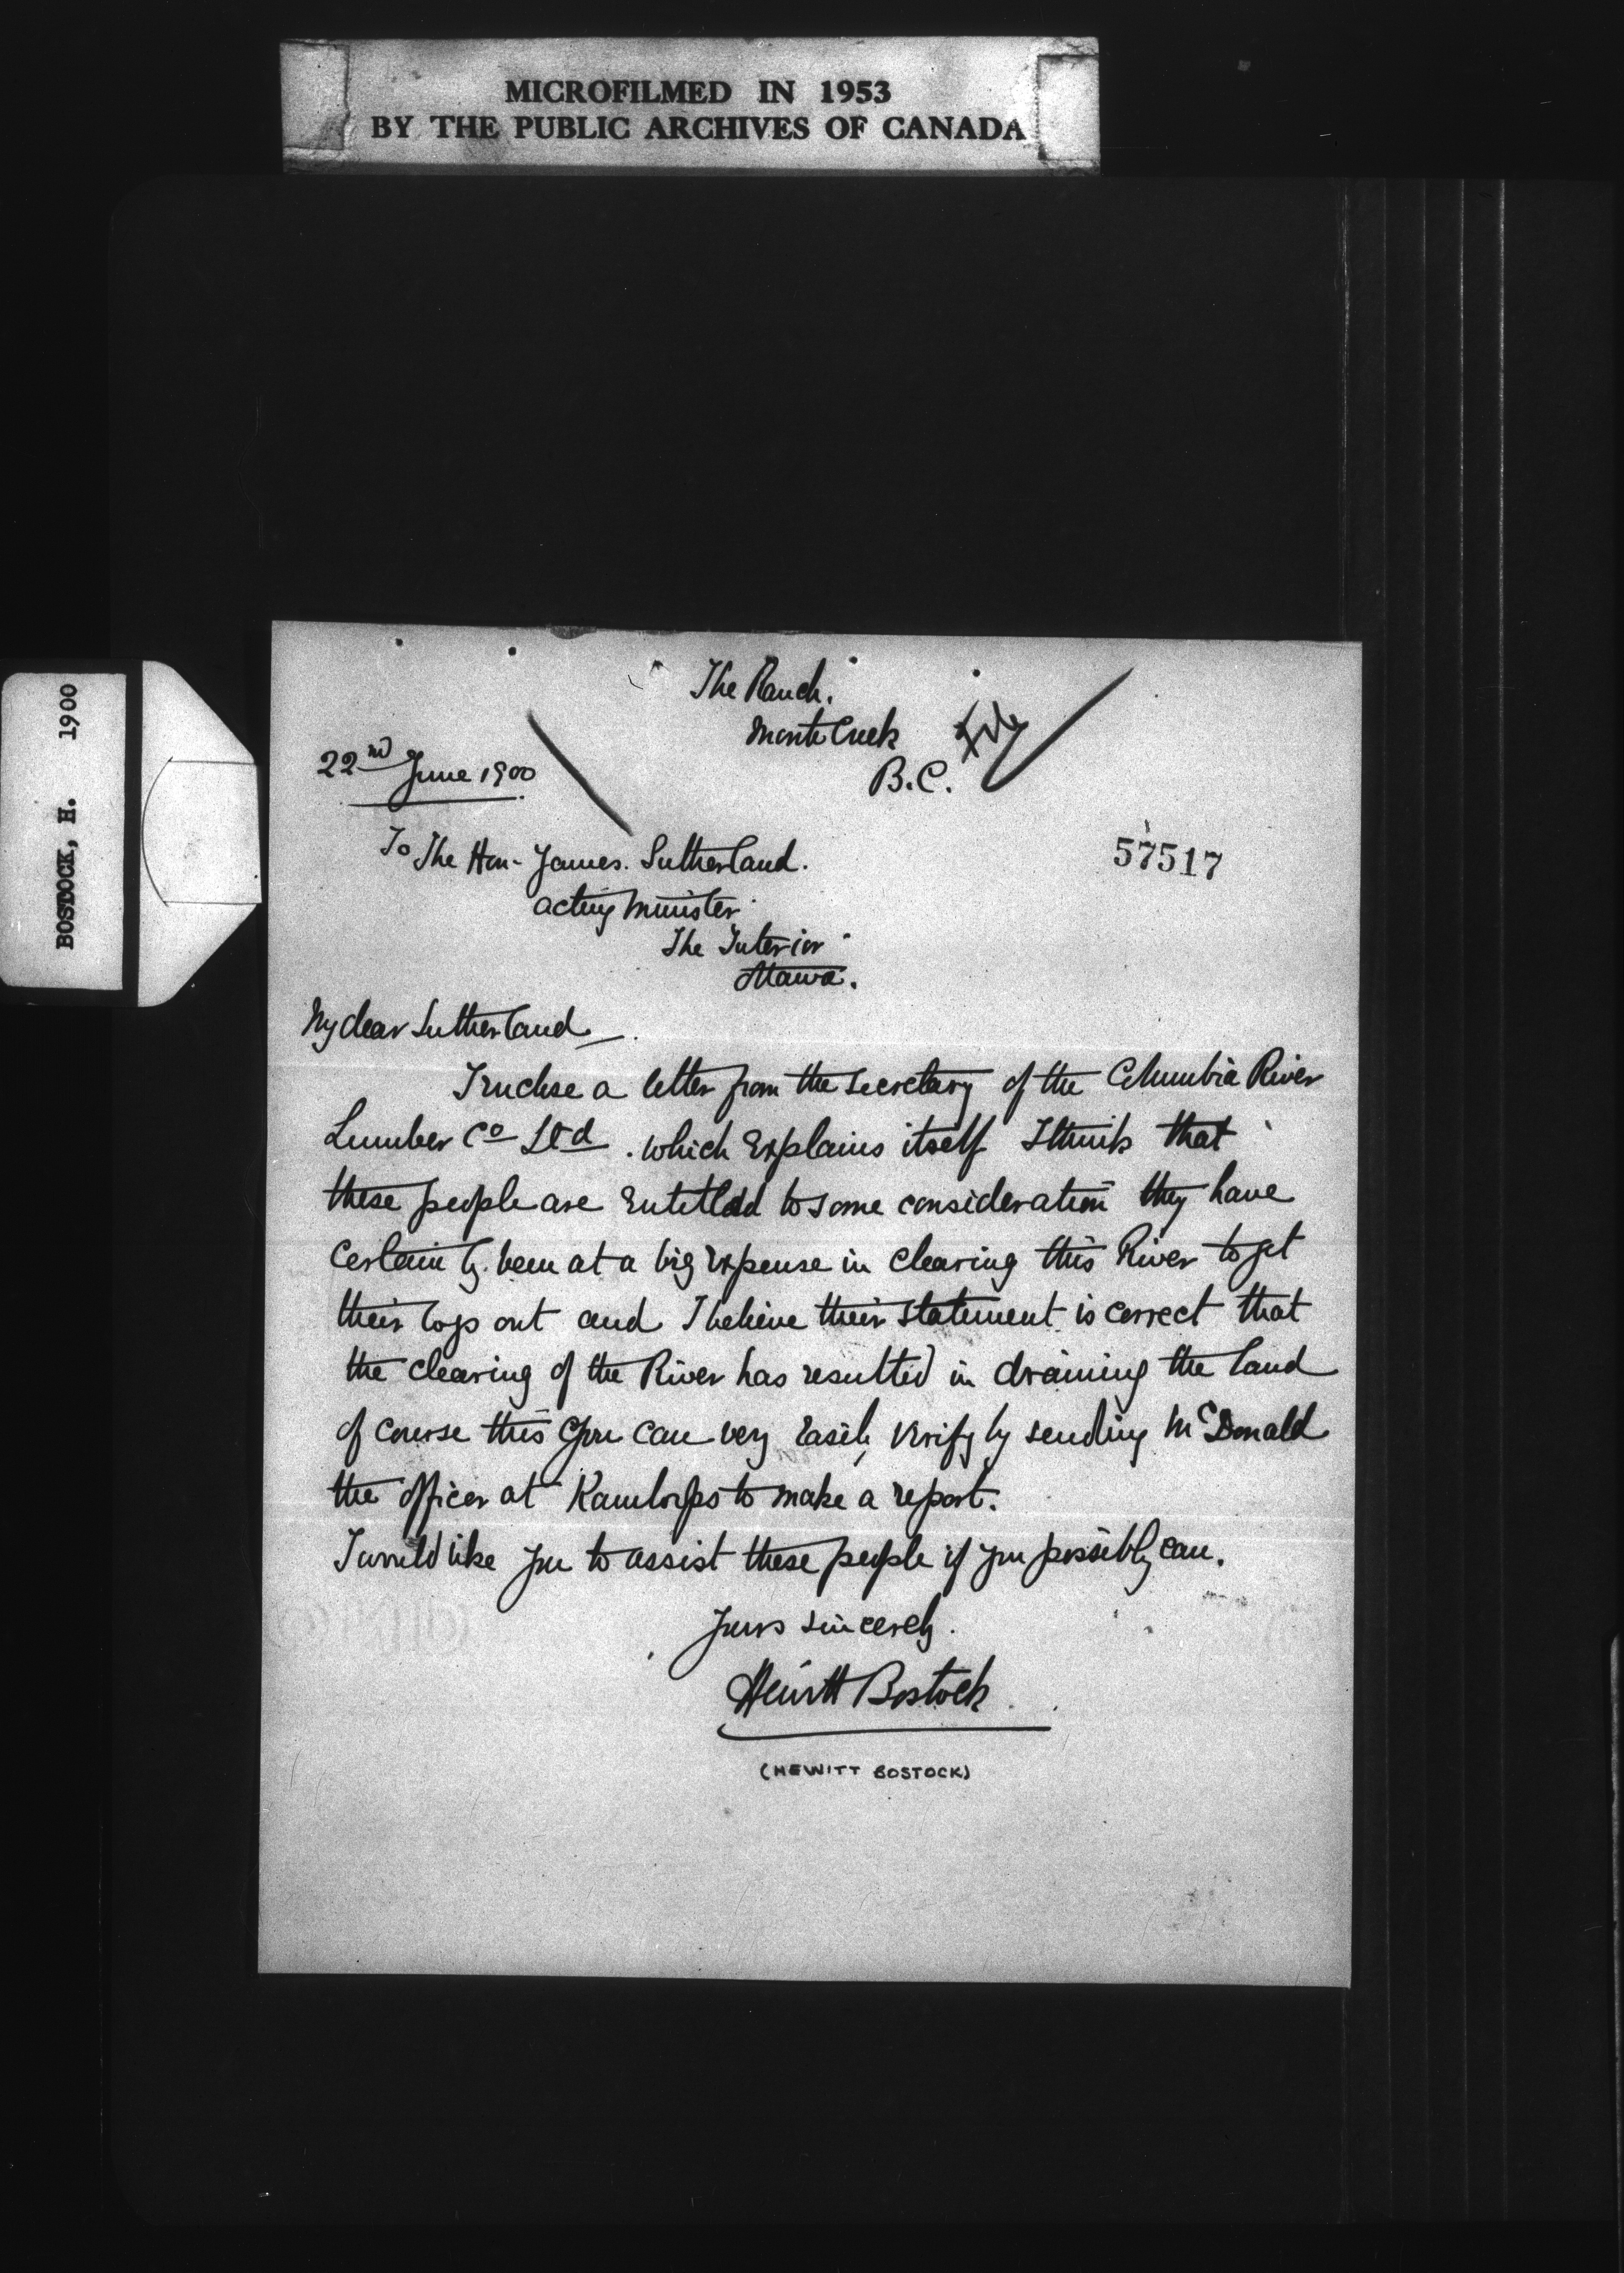 MICROFILMED IN 1953
BY THE PUBLIC ARCHIVES OF CANADA
BOSTOCK, H. 1900
The Ranch.
Monte Creek
B.C.
File
22nd June 1900
57517
To The Hon. James. Sutherland.
acting Minister
The Interior
Ottawa.
My dear Sutherland
I enclose a letter from the Secretary of the Columbia River
Lumber Co Ltd. which explains itself I think that
these people are entitled to some consideration they have
certainly been at a big expense in clearing this River to get
their logs out and I believe their statement is correct that
the clearing of the River has resulted in draining the land
of course this you can very easily verify by sending McDonald
the officer at Kamloops to make a report.
I would like you to assist these people if you possibly can.
Yours sincerely.
Hewitt Bostock
(HEWITT BOSTOCK)